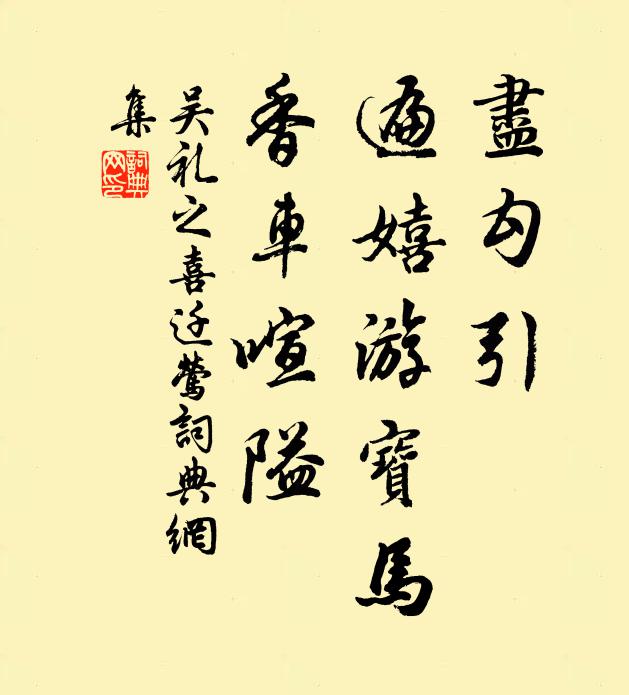 盡勾引
遍嬉游寶馬
香車喧隘
吴礼之喜迁鶯詞典網
集
詞典
网印